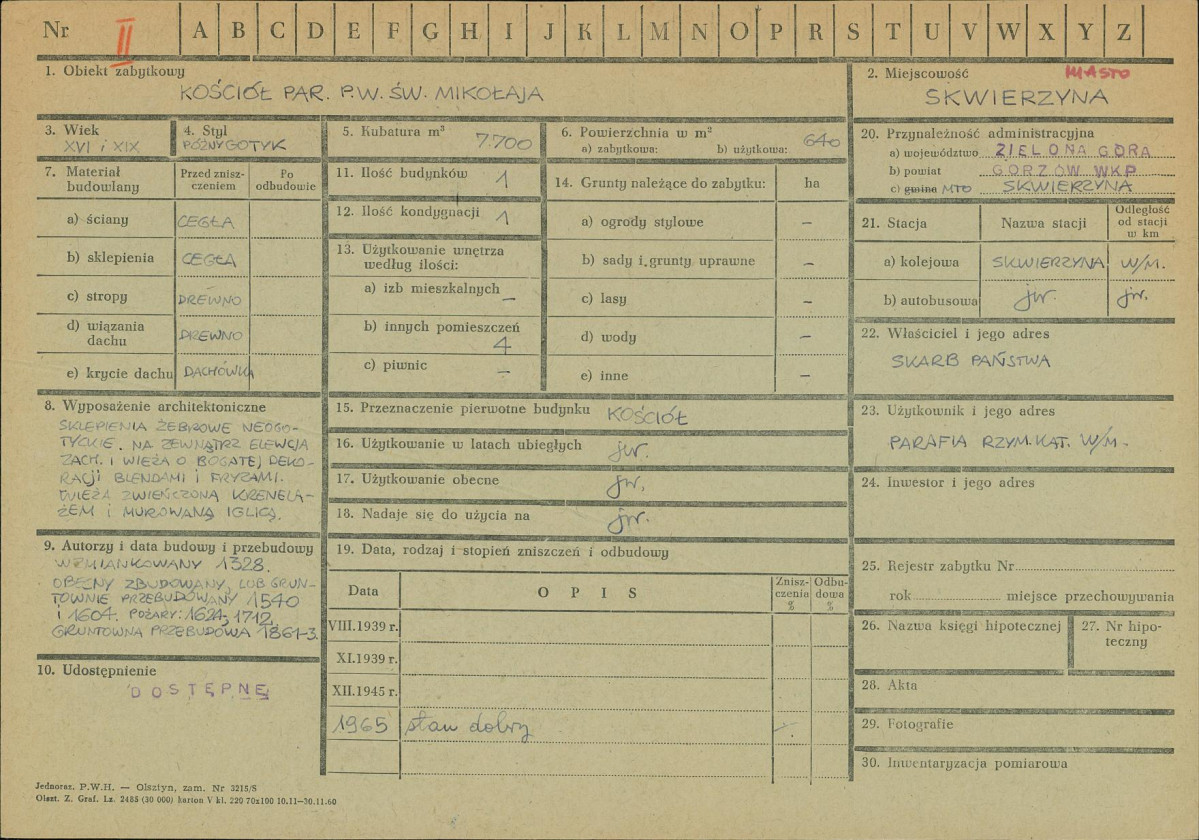 Nr II A B C D E F G H I J K L M N O P R S T U V W X Y Z
1. Obiekt zabytkowy
KOŚCIÓŁ PAR. P.W. ŚW. MIKOŁAJA
2. Miejscowość MIASTO
SKWIERZYNA
3. Wiek
XVI i XIX
4. Styl
PÓŹNY GOTYK
5. Kubatura m³ 7.700
6. Powierzchnia w m²
a) zabytkowa: b) użytkowa: 640
7. Materiał budowlany
Przed znisz-
czeniem
Po
odbudowie
a) ściany CEGŁA
b) sklepienia CEGŁA
c) stropy DREWNO
d) wiązania
dachu DREWNO
e) krycie dachu DACHÓWKA
8. Wyposażenie architektoniczne
SKLEPIENIA ŻEBROWE NEOGO-
TYCKIE. NA ZEWNĄTRZ ELEWCJA
ZACH. I WIEŻA O BOGATEJ DEKO-
RACJI BLENDAMI I FRYZAMI.
WIEŻA ZWIEŃCZONA KRENELA-
ŻEM I MUROWANĄ IGLICĄ.
9. Autorzy i data budowy i przebudowy
WZMIANKOWANY 1328.
OBECNY ZBUDOWANY, LUB GRUN-
TOWNIE PRZEBUDOWANY 1540
I 1604. POŻARY: 1624, 1712.
GRUNTOWNA PRZEBUDOWA 1861-3.
10. Udostępnienie
DOSTĘPNE
11. Ilość budynków 1
12. Ilość kondygnacji 1
13. Użytkowanie wnętrza
według ilości:
a) izb mieszkalnych –
b) innych pomieszczeń
4
c) piwnic –
14. Grunty należące do zabytku: ha
a) ogrody stylowe –
b) sady i grunty uprawne –
c) lasy –
d) wody –
e) inne –
15. Przeznaczenie pierwotne budynku KOŚCIÓŁ
16. Użytkowanie w latach ubiegłych jw.
17. Użytkowanie obecne jw.
18. Nadaje się do użycia na jw.
19. Data, rodzaj i stopień zniszczeń i odbudowy
Data O P I S
Znisz-
czenia
%
Odbu-
dowa
%
VIII.1939 r.
XI.1939 r.
XII.1945 r.
1965 stan dobry –
20. Przynależność administracyjna
a) województwo ZIELONA GÓRA
b) powiat GORZÓW WKP
c) gmina MTO SKWIERZYNA
21. Stacja Nazwa stacji
Odległość
od stacji
w km
a) kolejowa SKWIERZYNA W/M.
b) autobusowa jw. jw.
22. Właściciel i jego adres
SKARB PAŃSTWA
23. Użytkownik i jego adres
PARAFIA RZYM. KAT. W/M.
24. Inwestor i jego adres
25. Rejestr zabytku Nr
rok miejsce przechowywania
26. Nazwa księgi hipotecznej
27. Nr hipo-
teczny
28. Akta
29. Fotografie
30. Inwentaryzacja pomiarowa
Jednoraz. P.W.H. — Olsztyn, zam. Nr 3215/S
Olszt. Z. Graf. Lz. 2485 (30 000) karton V kl. 220 70x100 10.11—30.11.60